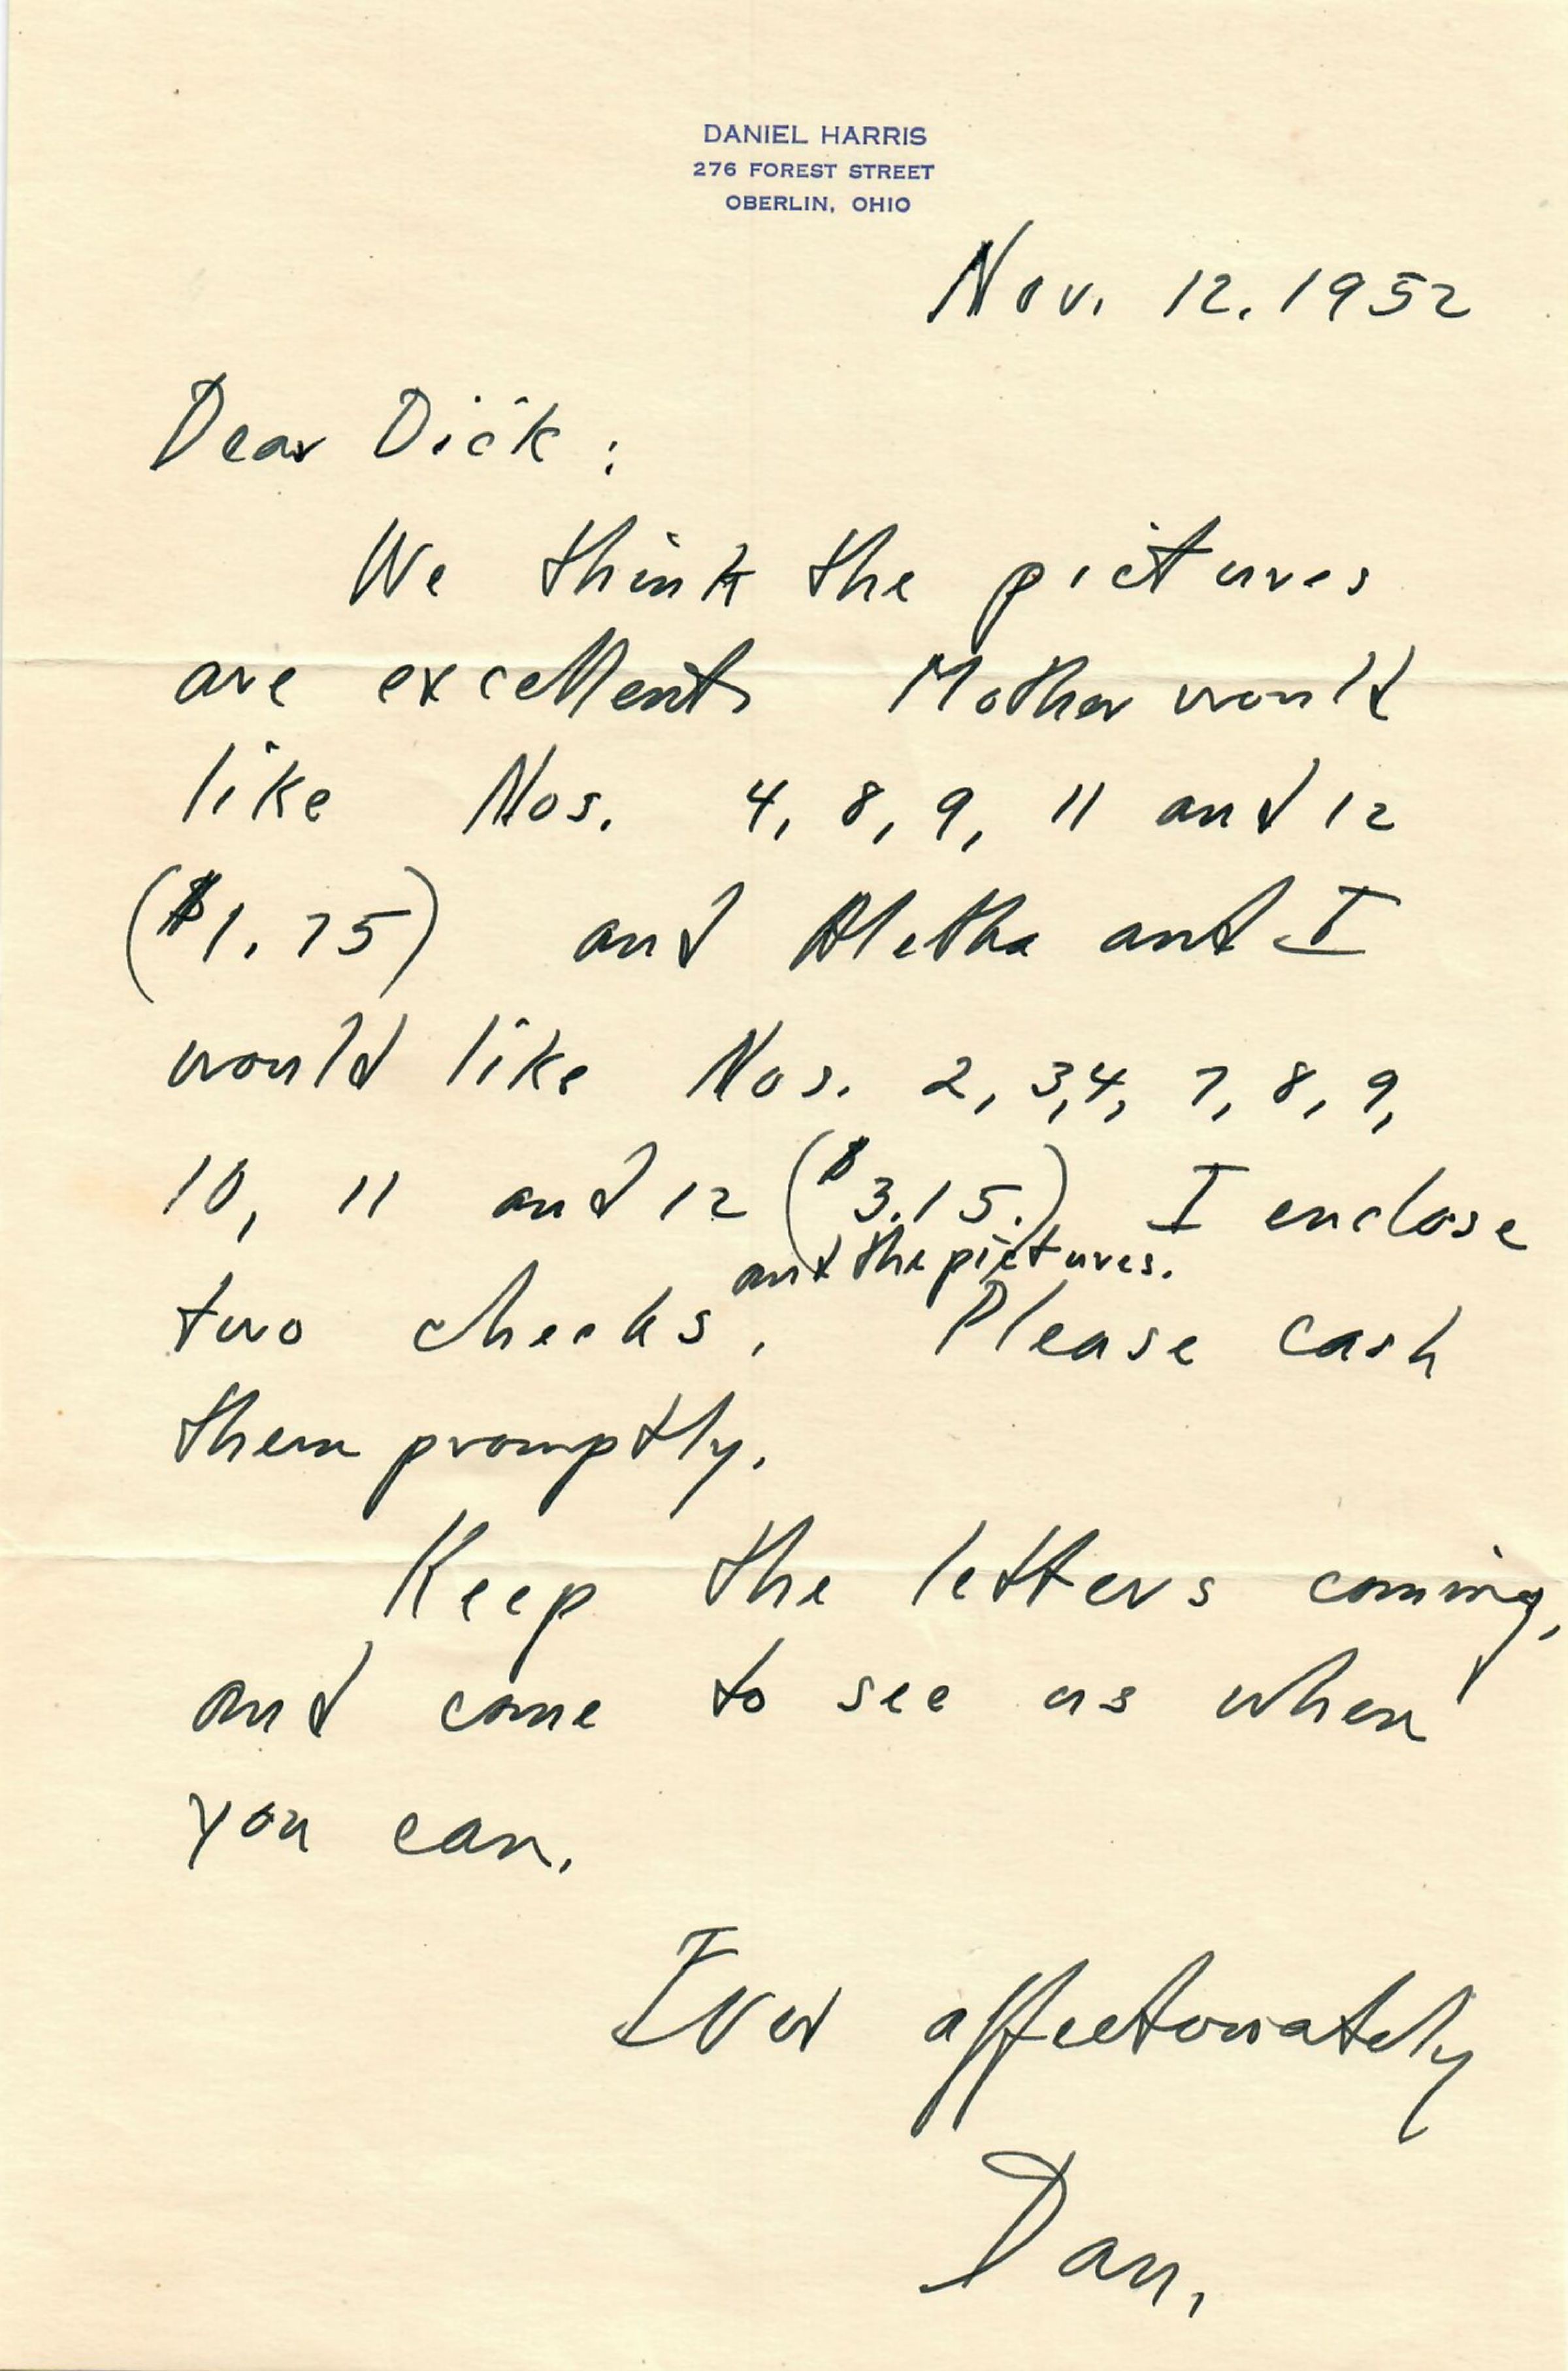 DANIEL HARRIS
276 FOREST STREET
OBERLIN, OHIO
Nov. 12, 1952
Dear Dick:
We think the pictures
are excellent. Mother would
like Nos. 4, 8, 9, 11 and 12
($1.75) and Aletha and I
would like Nos. 2, 3, 4, 7, 8, 9,
10, 11 and 12 ($3.15.) I enclose
and the pictures.
two checks, Please cash
them promptly.
Keep the letters coming,
and come to see us when
you can.
Ever affectionately
Dan.